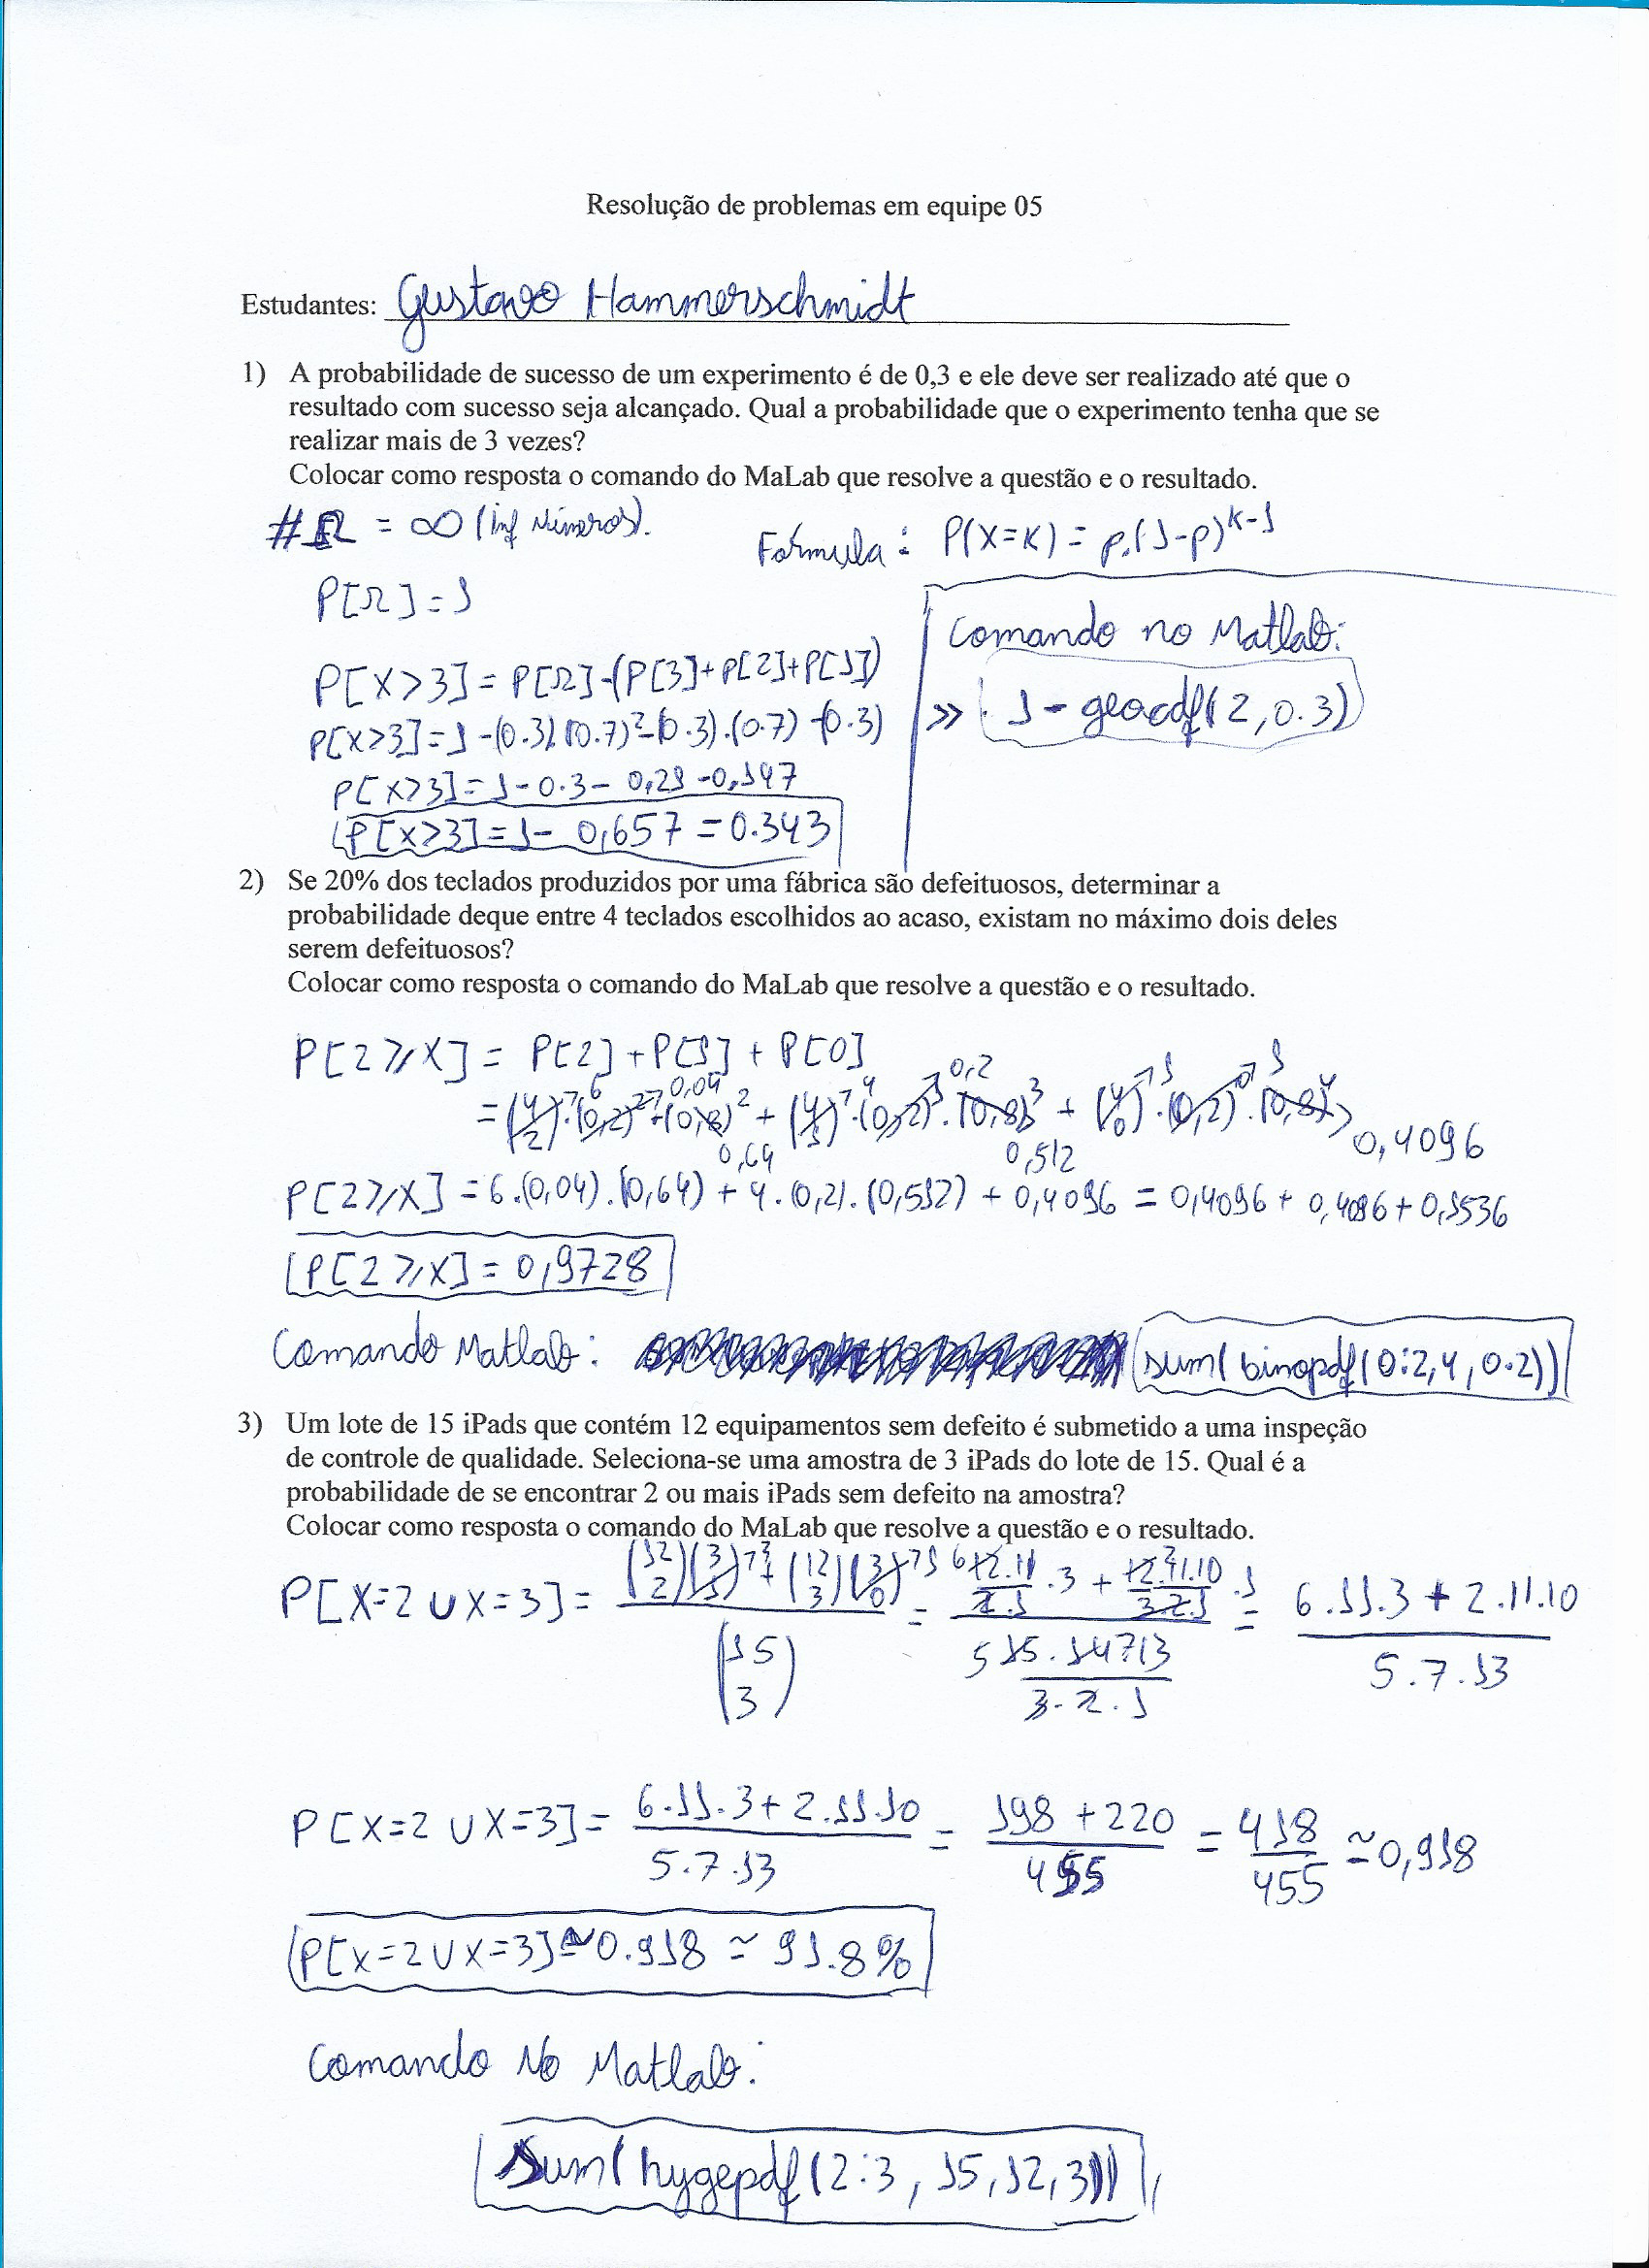 Resolução de problemas em equipe 05
Estudantes: Gustavo Hammerschmidt
1) A probabilidade de sucesso de um experimento é de 0,3 e ele deve ser realizado até que o
resultado com sucesso seja alcançado. Qual a probabilidade que o experimento tenha que se
realizar mais de 3 vezes?
Colocar como resposta o comando do MaLab que resolve a questão e o resultado.
#Ω = ∞ (inf Números).
Fórmula: P(X=K) = p.(1-p)^(K-1)
P[Ω] = 1
P[X>3] = P[Ω]-(P[3]+P[2]+P[1])
P[X>3] = 1-(0.3).(0.7)²-(0.3).(0.7)-(0.3)
P[X>3] = 1-0.3-0,21-0,147
P[X>3] = 1-0,657 = 0.343
Comando no Matlab:
>> 1-geocdf(2,0.3)
2) Se 20% dos teclados produzidos por uma fábrica são defeituosos, determinar a
probabilidade deque entre 4 teclados escolhidos ao acaso, existam no máximo dois deles
serem defeituosos?
Colocar como resposta o comando do MaLab que resolve a questão e o resultado.
P[2⩾X] = P[2]+P[1]+P[0]
6 0,04 4 0,2 1 1
= (4 2).(0,2)².(0,8)² + (4 1).(0,2)¹.(0,8)³ + (4 0).(0,2)⁰.(0,8)⁴
0,64 0,512 0,4096
P[2⩾X] = 6.(0,04).(0,64) + 4.(0,2).(0,512) + 0,4096 = 0,4096 + 0,4096 + 0,1536
P[2⩾X] = 0,9728
Comando Matlab: sum(binopdf(0:2,4,0.2))
3) Um lote de 15 iPads que contém 12 equipamentos sem defeito é submetido a uma inspeção
de controle de qualidade. Seleciona-se uma amostra de 3 iPads do lote de 15. Qual é a
probabilidade de se encontrar 2 ou mais iPads sem defeito na amostra?
Colocar como resposta o comando do MaLab que resolve a questão e o resultado.
P[X=2 ∪ X=3] = ((12 2)(3 1) + (12 3)(3 0)) / (15 3) = (12.11/2.1 .3 + 12.11.10/3.2.1 .1) / (15.14.13/3.2.1) = (6.11.3 + 2.11.10) / (5.7.13)
P[X=2 ∪ X=3] = (6.11.3 + 2.11.10) / (5.7.13) = (198 + 220) / 455 = 418/455 ≃ 0,918
P[X=2 ∪ X=3] ≃ 0.918 ≃ 91.8%
Comando No Matlab:
sum(hygepdf(2:3,15,12,3))